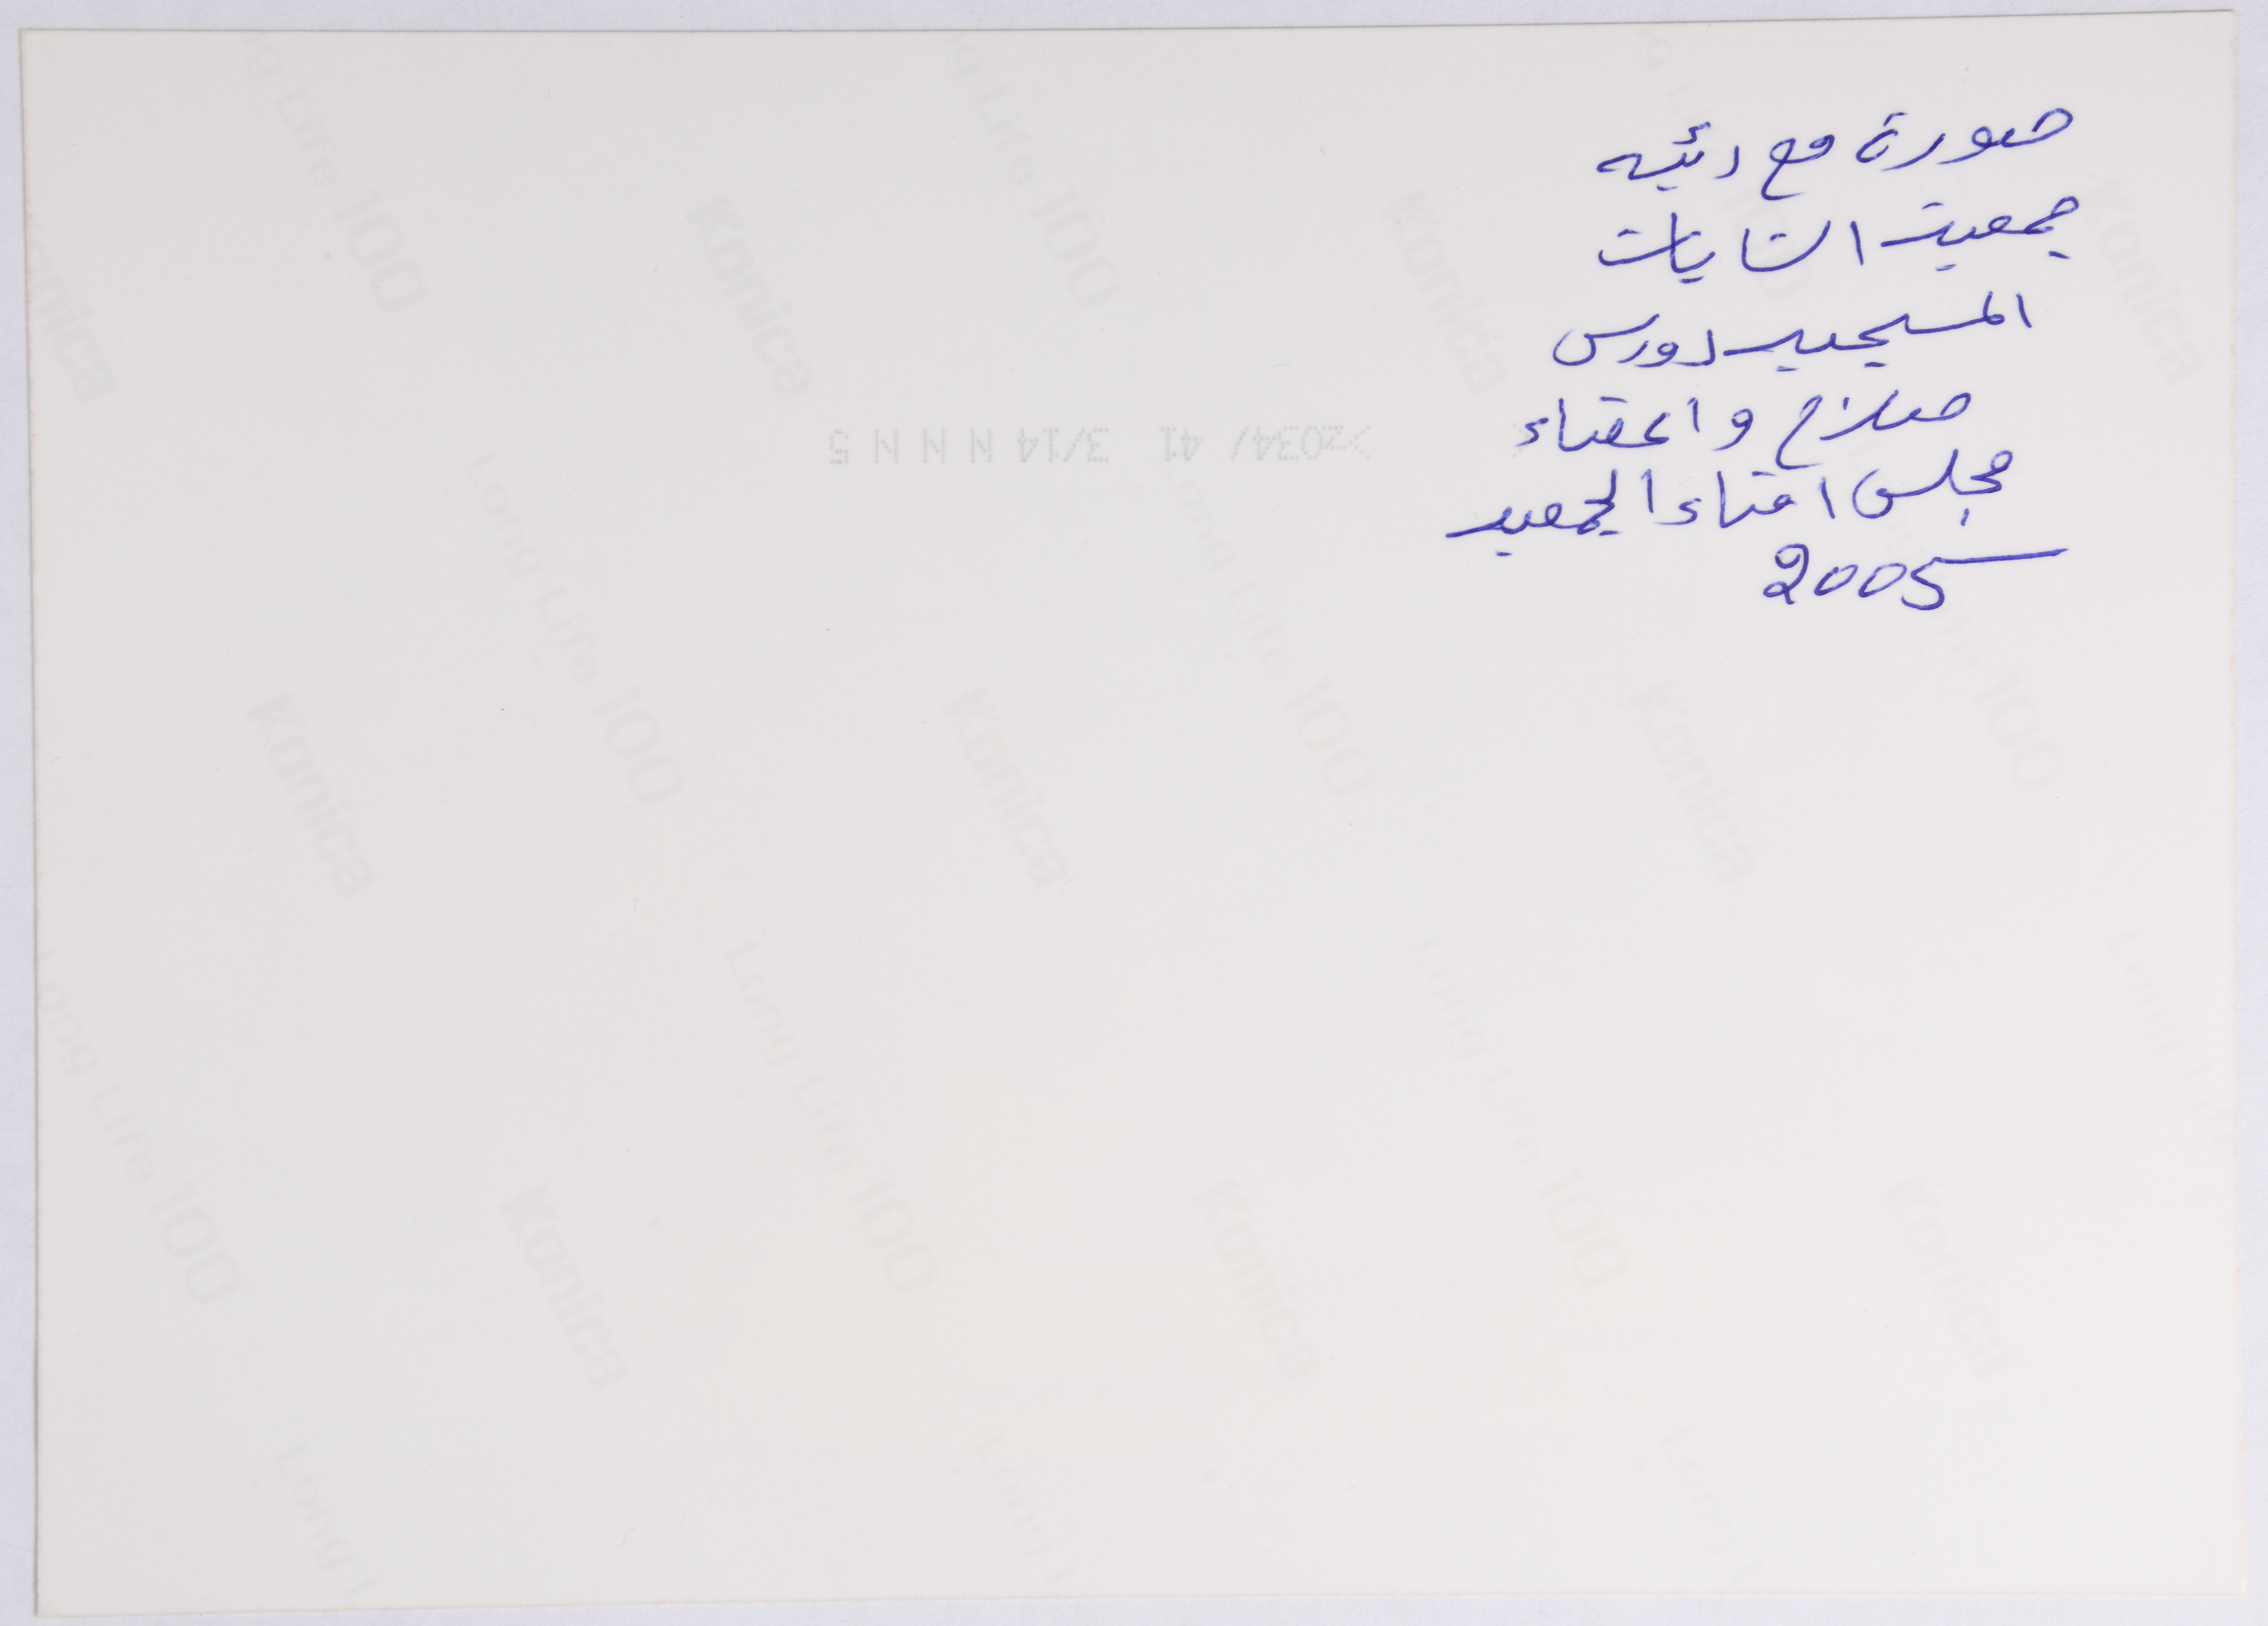 صورة مع رئيسه
جمعيت الشابات
المسيحيه دورس
صلاح واعضاء
مجلس امناء الجمعيه
2005
>z034/ 41 3/14 N N N 5
Konica
Long Life 100